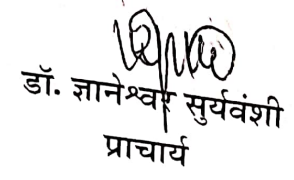 डॉ. ज्ञानेश्वर सुर्यवंशी
प्राचार्य